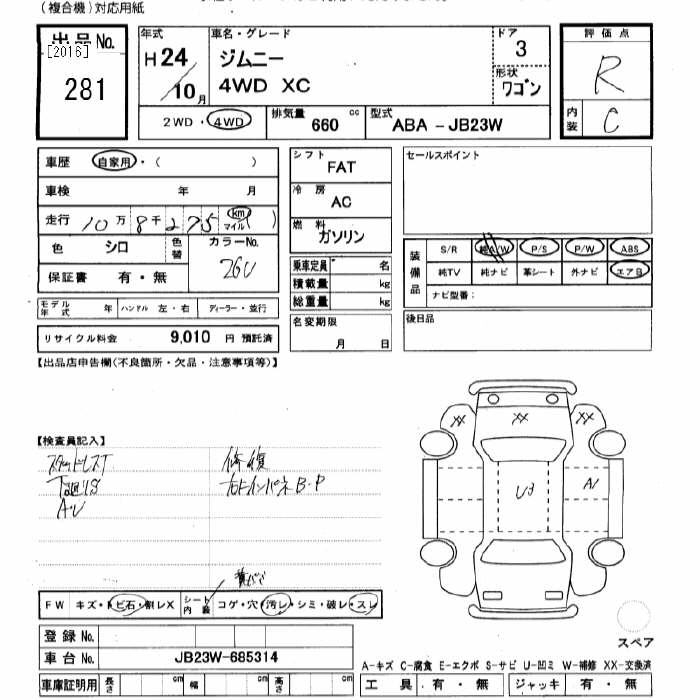 (複合機)対応用紙
出品No.
[2016]
281
年式
H24
10月
車名・グレード
ジムニー
4WD XC
ドア
3
形状
ワゴン
評価点
R
内装
C
2WD・4WD
排気量
660 cc
型式
ABA-JB23W
車歴 自家用・( )
車検 年 月
走行 10万8千275 km マイル( )
色 シロ 色替
カラーNo.
26U
保証書 有・無
モデル年式 年 ハンドル 左・右 ディーラー・並行
リサイクル料金 9,010 円 預託済
シフト
FAT
冷房
AC
燃料
ガソリン
乗車定員 名
積載量 kg
総重量 kg
名変期限
月 日
セールスポイント
装備品
S/R 純A/W P/S P/W ABS
純TV 純ナビ 革シート 外ナビ エアB
ナビ型番:
後日品
【出品店申告欄(不良箇所・欠品・注意事項等)】
【検査員記入】
下廻りS
AU
修復
右インパネB・P
XX XX XX
U3
A1
FW キズ・トビ石・割レX
シート内装 コゲ・穴・汚レ・シミ・破レ・スレ
登録No.
車台No. JB23W-685314
車庫証明用 長さ cm 幅 cm 高さ cm
スペア
A-キズ C-腐食 E-エクボ S-サビ U-凹ミ W-補修 XX-交換済
工具 有・無 ジャッキ 有・無